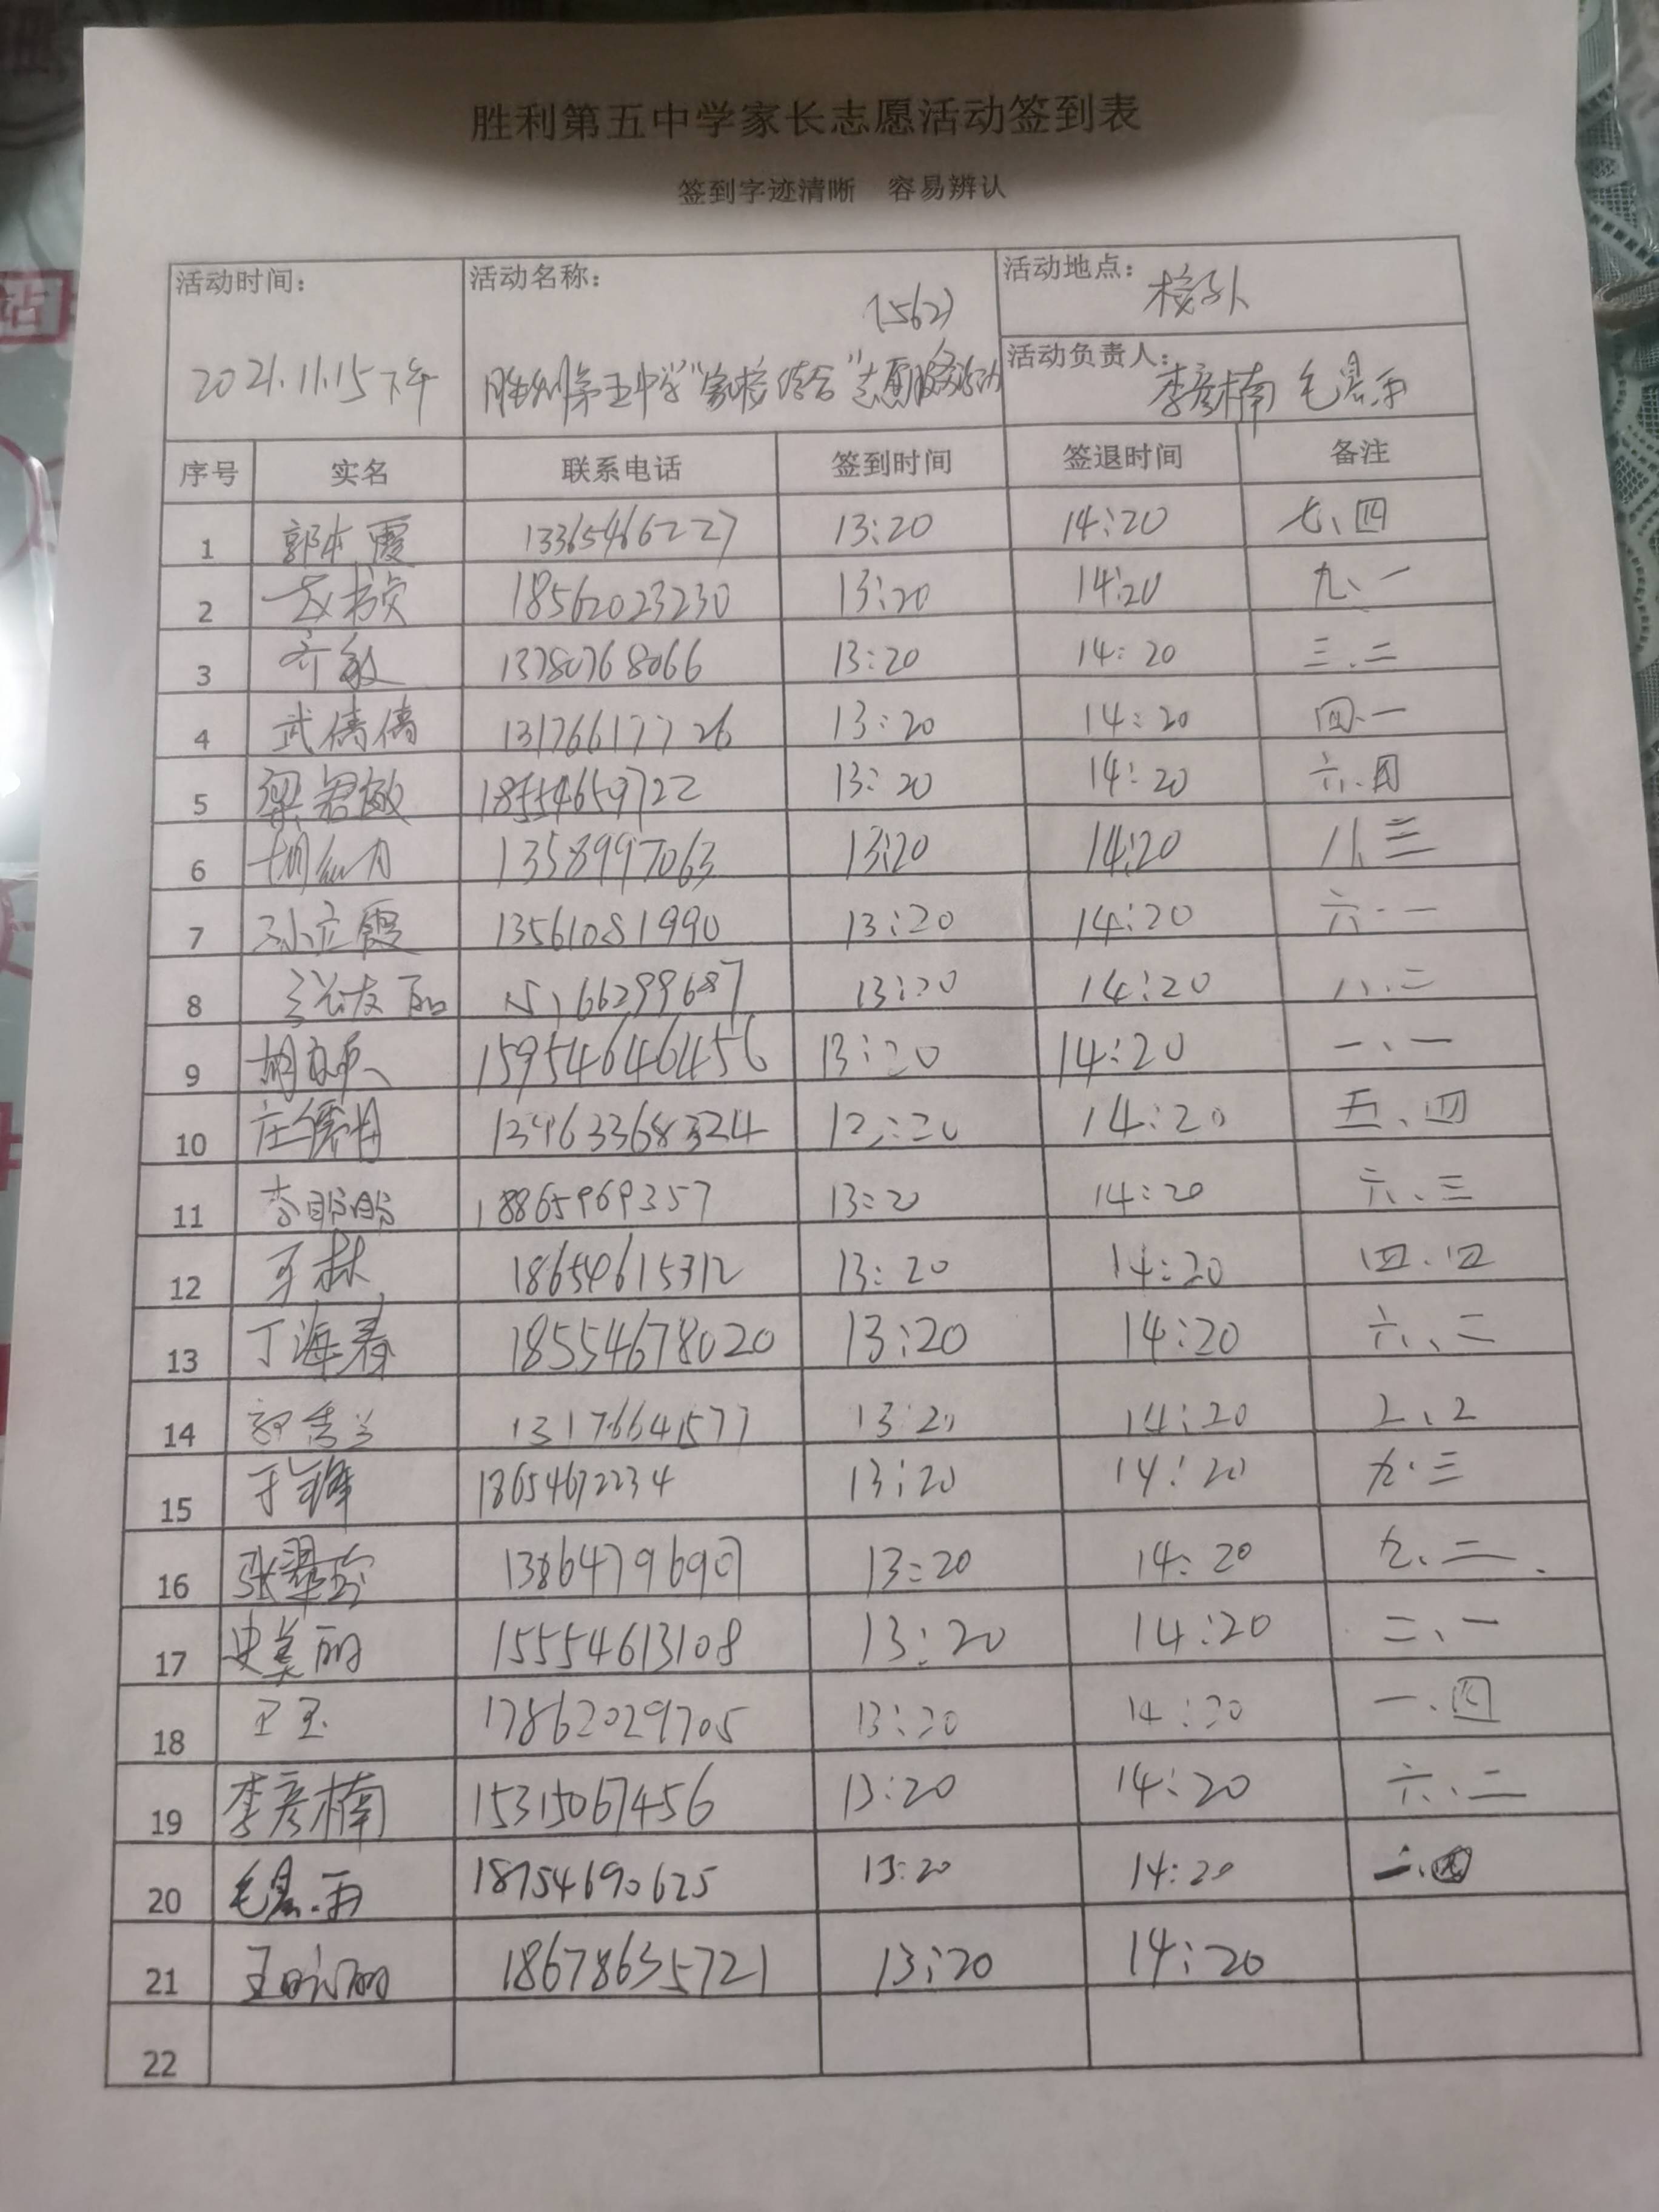 胜利第五中学家长志愿活动签到表
签到字迹清晰 容易辨认
活动时间： 活动名称： 活动地点： 校外
(562)
2021.11.15下午 胜利第五中学"家校结合"志愿服务活动 活动负责人： 李彦楠 毛晨雨
序号 实名 联系电话 签到时间 签退时间 备注
1 郭本霞 13365466227 13:20 14:20 七、四
2 18562023230 13:20 14:20 九、一
3 齐敏 13780768066 13:20 14:20 三、二
4 武倩倩 13176617726 13:20 14:20 四、一
5 梁君敏 18554659722 13:20 14:20 六、四
6 13589997063 13:20 14:20 八、三
7 孙立霞 13561081990 13:20 14:20 六、一
8 15166299687 13:20 14:20 八、二
9 13:20 14:20 一、一
10 14:20 五、四
11 李盼盼 18865969357 13:20 14:20 六、三
12 18654615312 13:20 14:20 四、四
13 丁海春 18554678020 13:20 14:20 六、二
14 13176641577 13:20 14:20 2、2
15 于锋 1865462234 13:20 14:20 九、三
16 张翠玲 13864796907 13:20 14:20 九、二
17 史美丽 15554613108 13:20 14:20 二、一
18 卫玉 17862029705 13:20 14:20 一、四
19 李彦楠 15315067456 13:20 14:20 六、二
20 毛晨雨 18754690625 13:20 14:20 二、四
21 18678635721 13:20 14:20
22